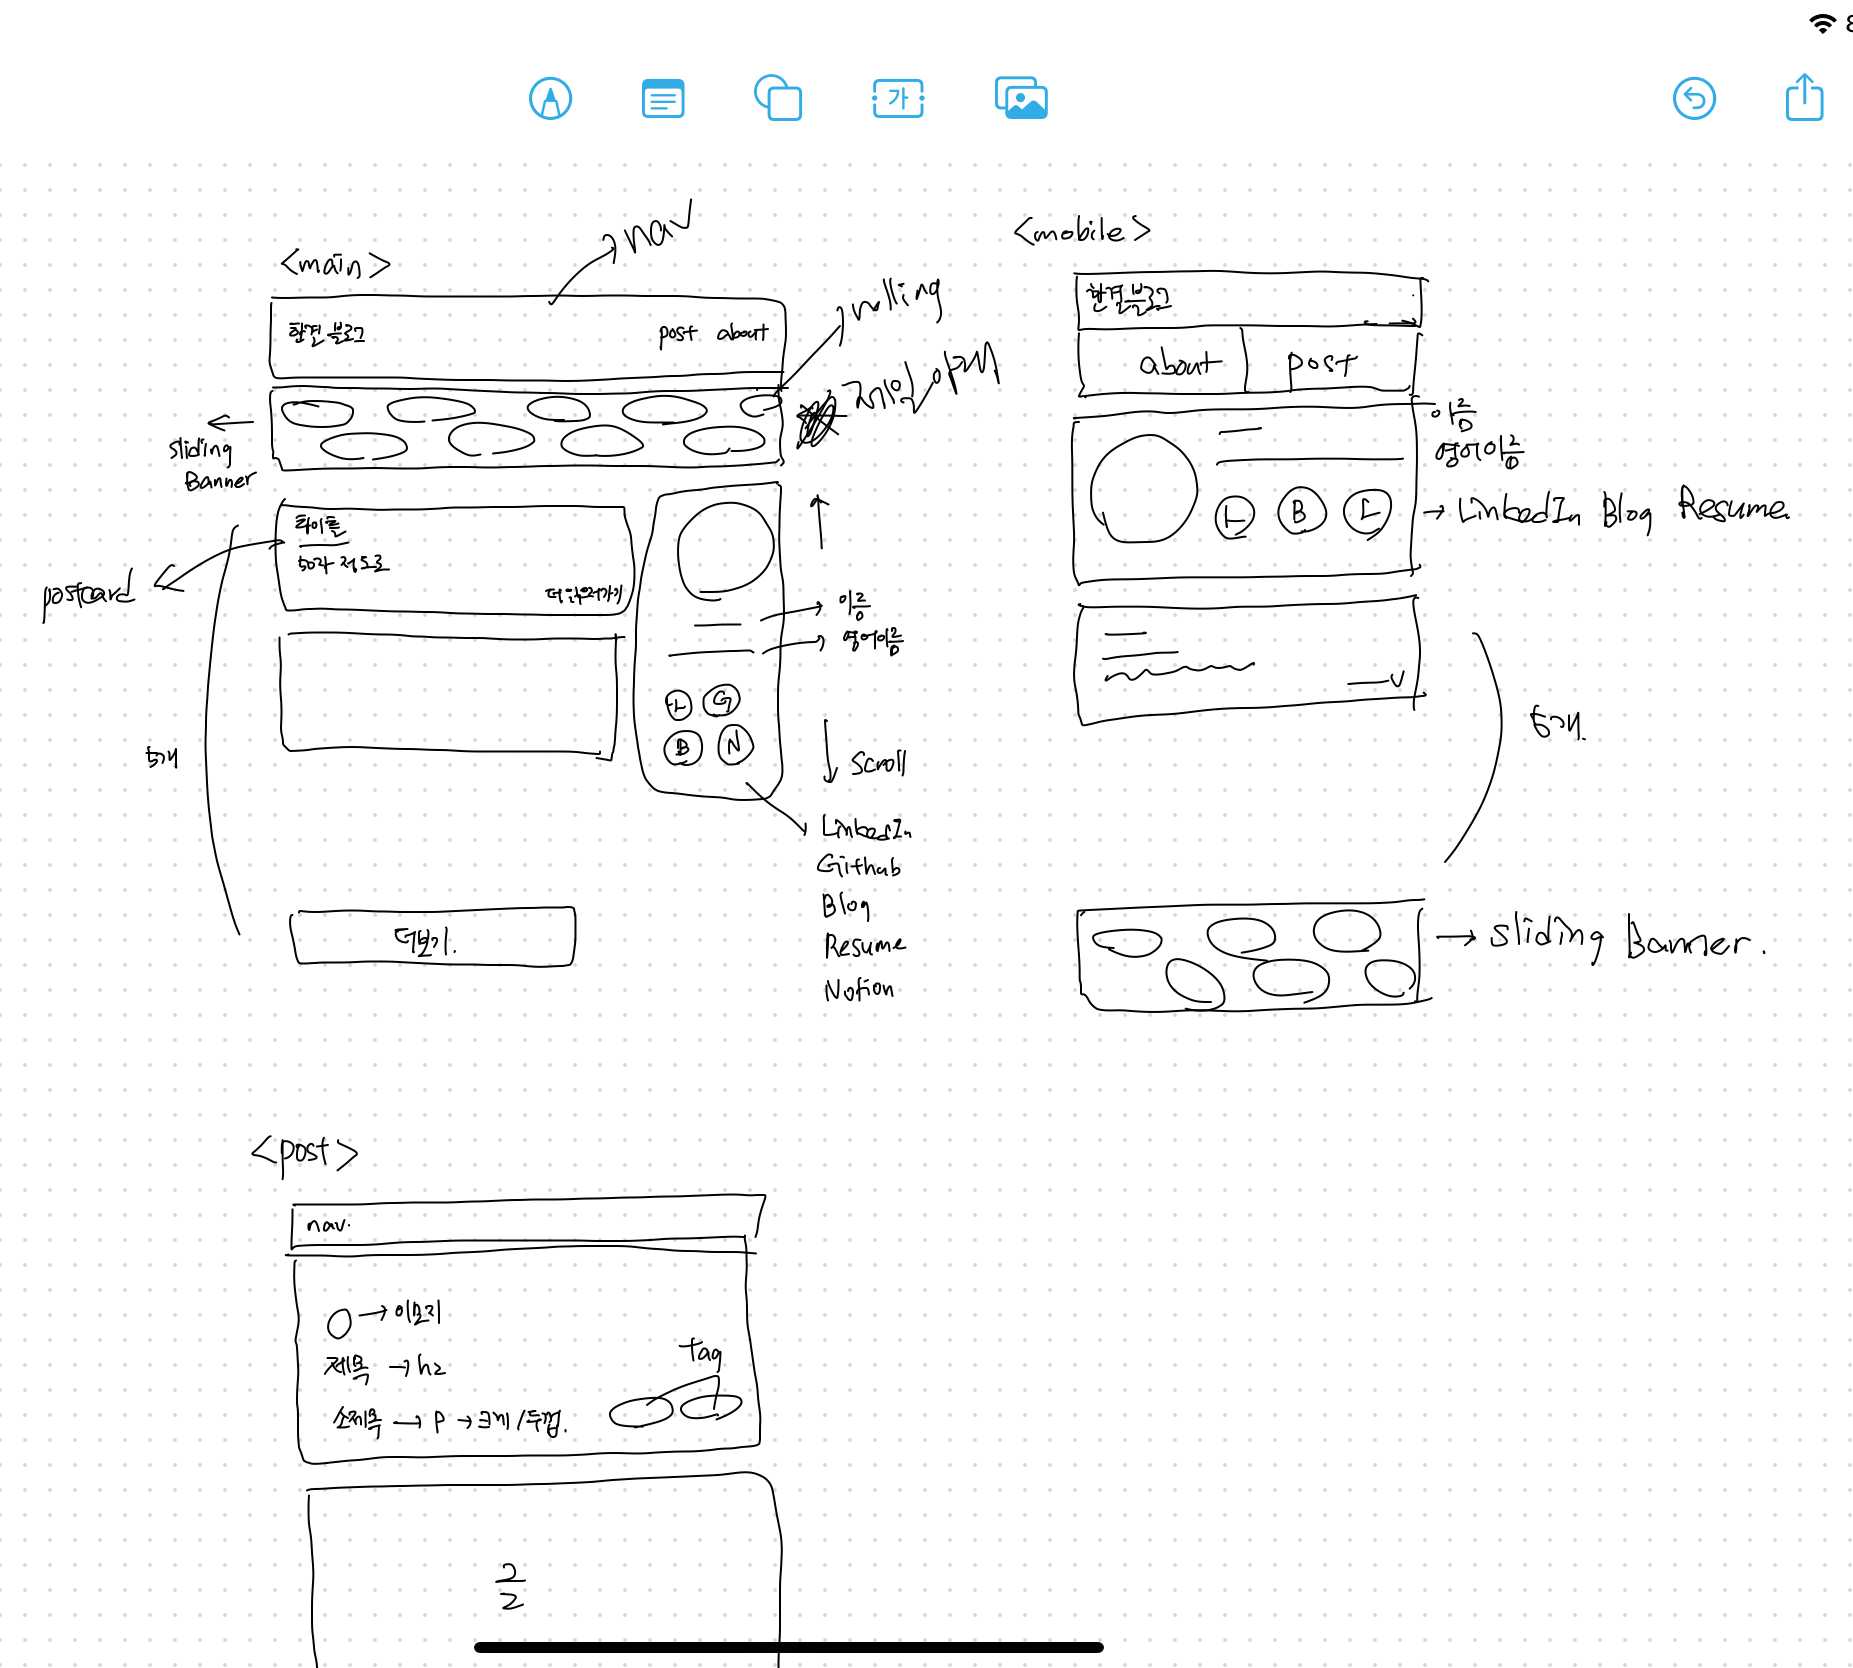 8
가
<main>
nav
한결 블로그
post about
rolling
제일 아래
sliding
Banner
타이틀
50자 정도로
더 읽으러가기
postcard
이름
영어이름
L G
B N
5개
Scroll
LinkedIn
Github
Blog
Resume
Notion
더보기.
<mobile>
한결 블로그
about post
이름
영어이름
L B L
LinkedIn Blog Resume.
5개.
Sliding Banner.
<post>
nav.
이모지
제목 → h2
Tag
소제목 → P → 크기/두껍.